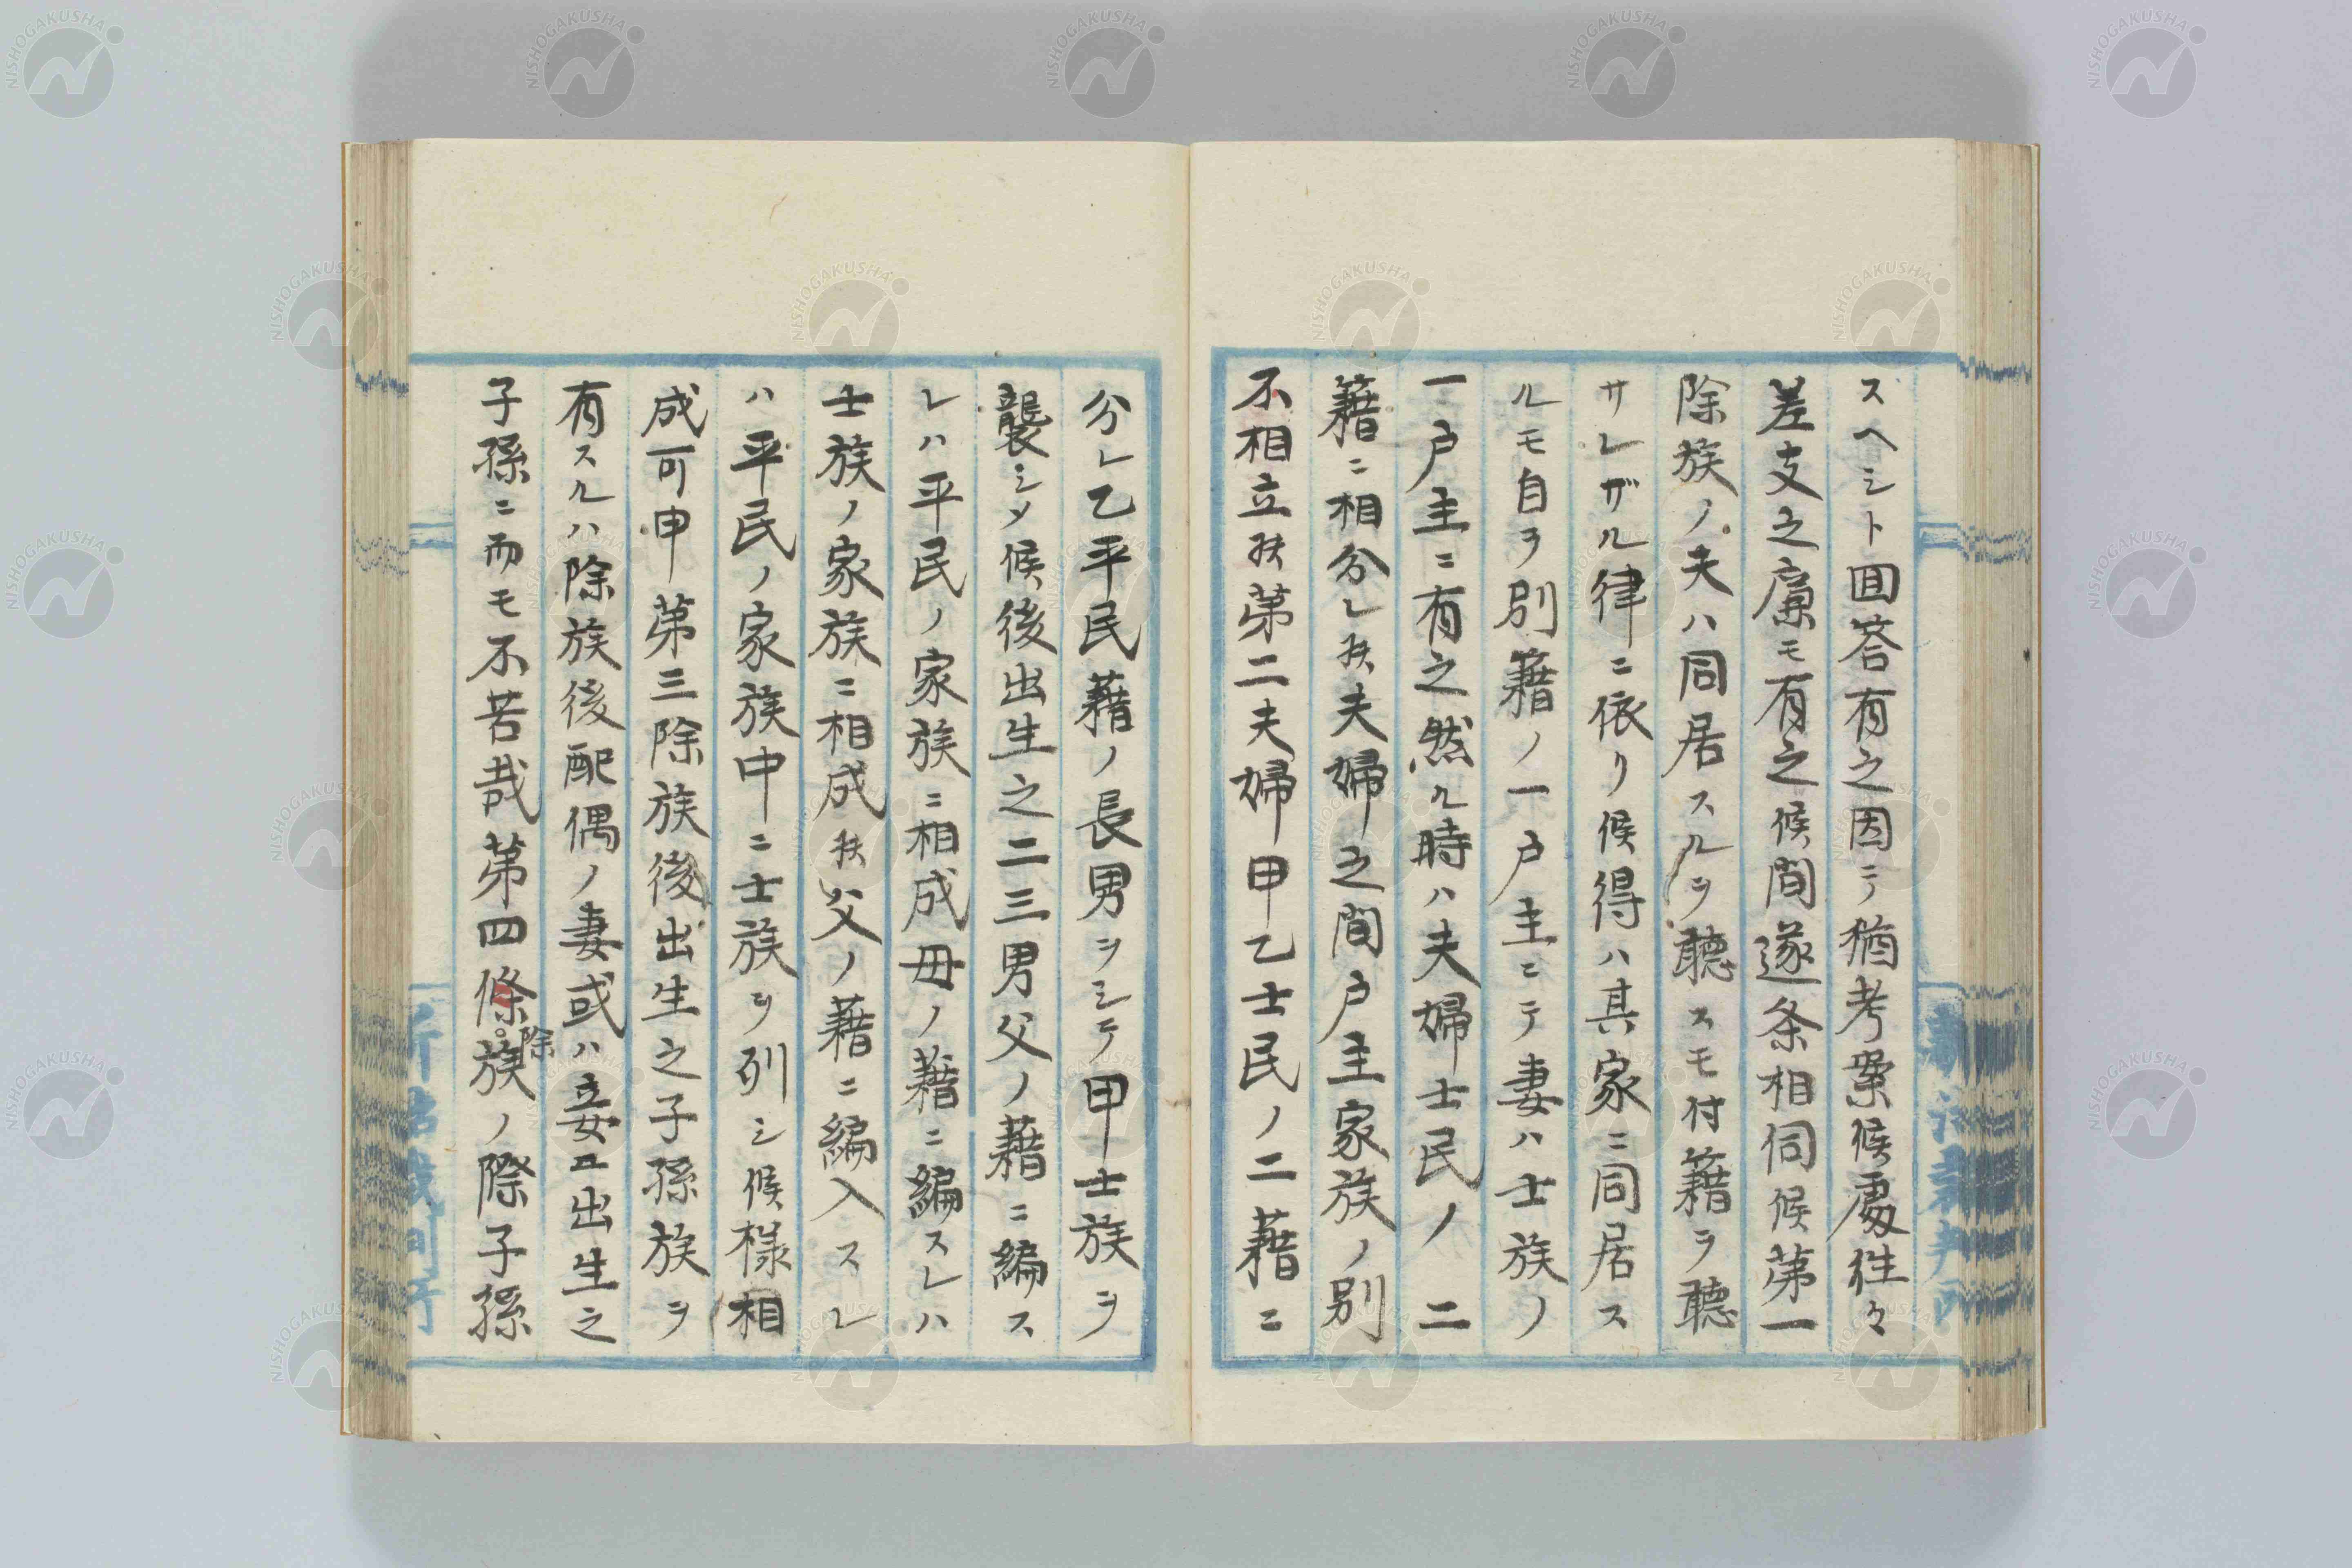 スヘシト回答有之因テ猶考案候處往々
差支之廉モ有之候間遂条相伺候第一
除族ノ夫ハ同居スルヲ聴スモ付籍ヲ聴
サレザル律ニ依リ候得ハ其家ニ同居ス
ルモ自ラ別籍ノ一戸主ニテ妻ハ士族ノ
一戸主ニ有之然ル時ハ夫婦士民ノ二
籍ニ相分レ㧊夫婦之間戸主家族ノ別
不相立㧊第二夫婦甲乙士民ノ二籍ニ
分レ乙平民籍ノ長男ヲシテ甲士族ヲ
襲シメ候後出生之二三男父ノ籍ニ編ス
レハ平民ノ家族ニ相成母ノ籍ニ編スレハ
士族ノ家族ニ相成㧊父ノ籍ニ編入スレ
ハ平民ノ家族中ニ士族ヲ列シ候様相
成可申第三除族後出生之子孫族ヲ
有スルハ除族後配偶ノ妻或ハ妾ヱ出生之
子孫ニ而モ不苦哉第四條除族ノ際子孫
NISHOGAKUSHA